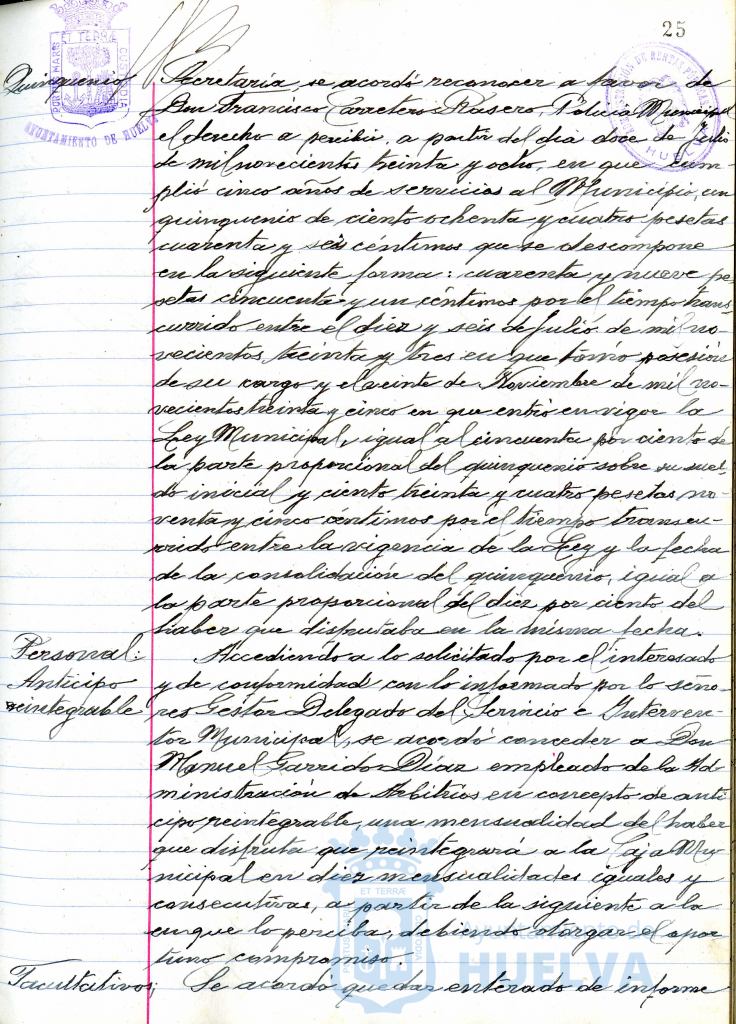 25
PORTUS MARIS ET TERRÆ CUSTODIA
AYUNTAMIENTO DE HUELVA
HUELVA
Quinquenio
Secretaría, se acordó reconocer a favor de
Don Francisco Rasero, Policía Municipal
el derecho a percibir, a partir del dia doce de Julio
de mil novecientos treinta y ocho, en que cum-
plió cinco años de servicios al Municipio, un
quinquenio de ciento ochenta y cuatro pesetas
cuarenta y seis céntimos que se descompone
en la siguiente forma: cuarenta y nueve pe-
setas cincuenta y un céntimos por el tiempo trans-
currido entre el diez y seis de Julio de mil no-
vecientos treinta y tres en que tomó posesión
de su cargo y el veinte de Noviembre de mil no-
vecientos treinta y cinco en que entró en vigor la
Ley Municipal, igual al cincuenta por ciento de
la parte proporcional del quinquenio sobre su suel-
do inicial y ciento treinta y cuatro pesetas no-
venta y cinco céntimos por el tiempo transcu-
rrido entre la vigencia de la Ley y la fecha
de la consolidación del quinquenio, igual a
la parte proporcional del diez por ciento del
haber que disfrutaba en la misma fecha.
Personal:
Anticipo
reintegrable
Accediendo a lo solicitado por el interesado
y de conformidad con lo informado por lo seño-
res Gestor Delegado del Servicio e Interven-
tor Municipal, se acordó conceder a Don
Manuel Garrido Díaz empleado de la Ad-
ministración de Arbitrios en concepto de anti-
cipo reintegrable, una mensualidad del haber
que disfruta que reintegrará a la Caja Mu-
nicipal en diez mensualidades iguales y
consecutivas, a partir de la siguiente a la
en que lo perciba, debiendo otorgar el opor-
tuno compromiso.
Facultativos;
Se acordó quedar enterado de informe
PORTUS MARIS ET TERRÆ CUSTODIA
Ayuntamiento de
HUELVA